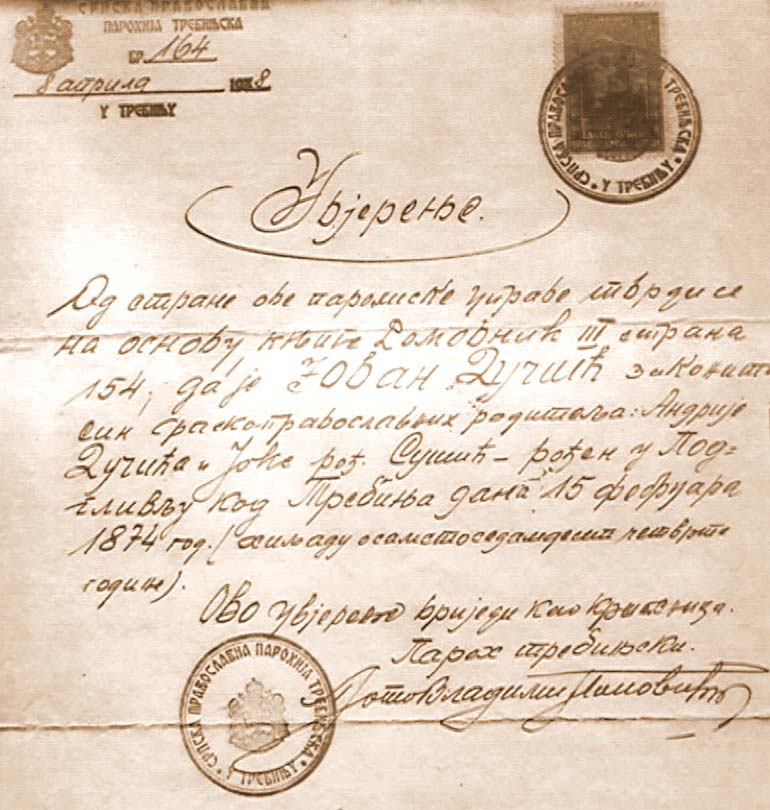 СРПСКА ПРАВОСЛАВНА
ПАРОХИЈА ТРЕБИЊСКА
БР. 164
8 априла 1938
У ТРЕБИЊУ
СРПСКА ПРАВОСЛАВНА ПАРОХИЈА ТРЕБИЊСКА • У ТРЕБИЊУ •
Увјерење.
Од стране ове парохиске управе тврди се
на основу књиге Домовник III страна
154, да је Јован Дучић законити
син српскоправославних родитеља: Андрије
Дучића и Јоке рођ. Сушић – рођен у Под-
гливљу код Требиња дана 15 фебруара
1874 год. (хиљаду осамстоседамдесет четврте
године).
Ово увјерење вриједи као крштеница.
Парох требињски.
Прото Владимир Поповић
СРПСКА ПРАВОСЛАВНА ПАРОХИЈА ТРЕБИЊСКА • У ТРЕБИЊУ •